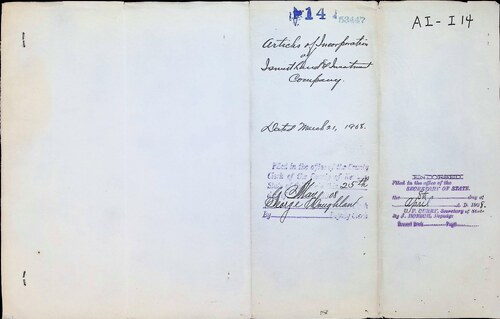 14
59447
AI-I14
Articles of Incorporation
of
Land & Investment
Company.
Dated March 21, 1908.
Filed in the office of the County
Clerk of the County of
25th
May 08
George Houghland
By Deputy Clerk
ENDORSED
Filed in the office of the
SECRETARY OF STATE,
the 8th day of
April A. D. 1908.
C. F. CURRY, Secretary of State
By J. HOESCH, Deputy
Record Book Page